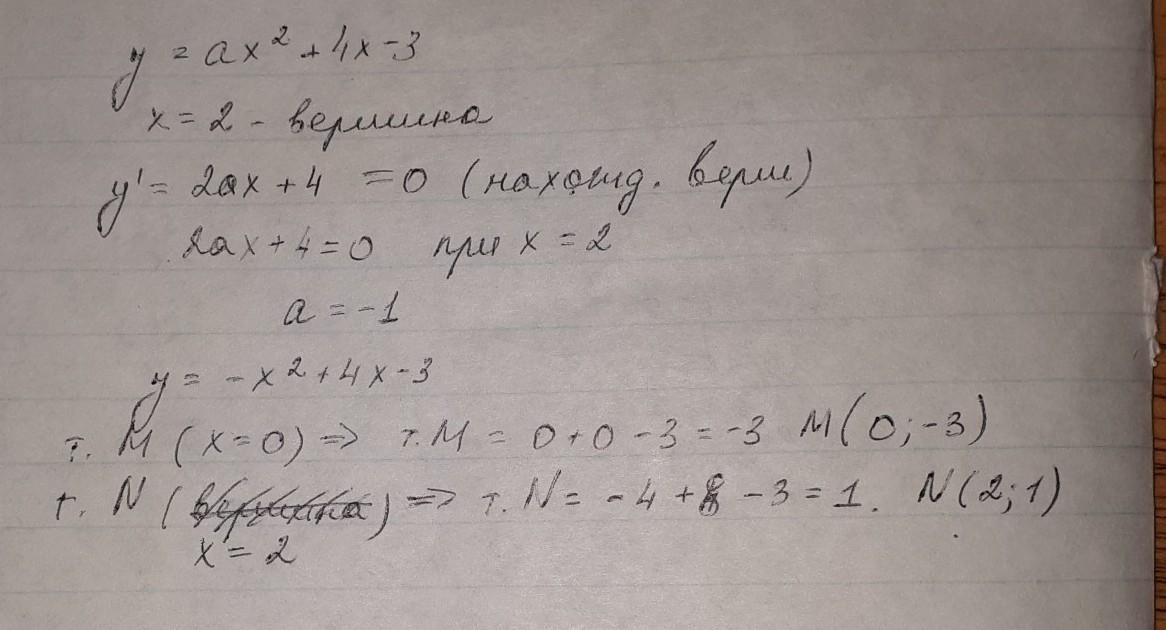 y = ax² + 4x - 3
x = 2 - вершина
y' = 2ax + 4 = 0 (нахожд. верш)
2ax + 4 = 0 при x = 2
a = -1
y = -x² + 4x - 3
т. M (x = 0) => т. M = 0 + 0 - 3 = -3 M(0; -3)
т. N (вершина) => т. N = -4 + 8 - 3 = 1. N(2; 1)
x = 2